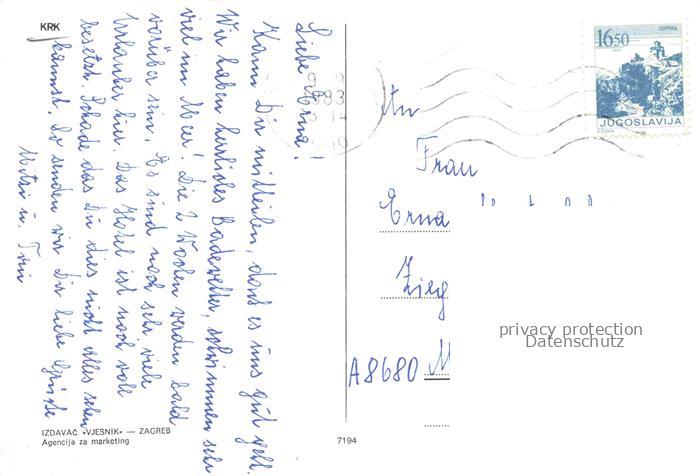 KRK
Liebe Erna!
Kann Dir mitteilen, dass es uns gut geht.
Wir haben herrliches Badewetter, schwimmen sehr
viel im Meer! Die 2 Wochen werden bald
vorüber sein. Es sind noch sehr viele
Urlauber hier. Das Hotel ist noch voll
besetzt. Schade das Du dies nicht alles sehen
kannst. So senden wir Dir liebe Grüße
u.
IZDAVAČ «VJESNIK» — ZAGREB
Agencija za marketing
7194
1650
JUGOSLAVIJA
83
An
Frau
Erna
Zieg
A8680 M
privacy protection
Datenschutz